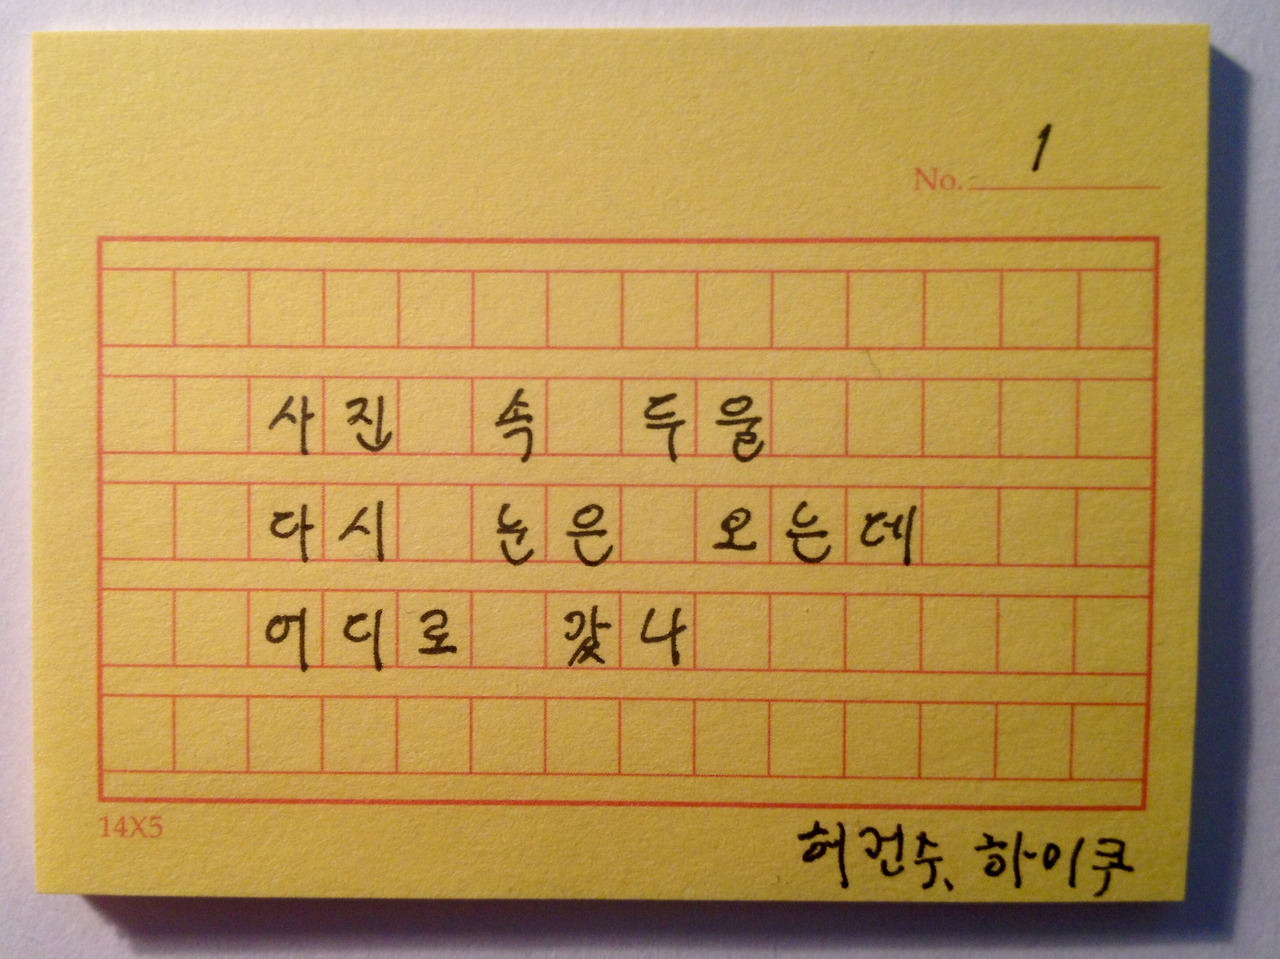 No. 1
사진 속 두울
다시 눈은 오는데
어디로 갔나
14X5
허건수, 하이쿠